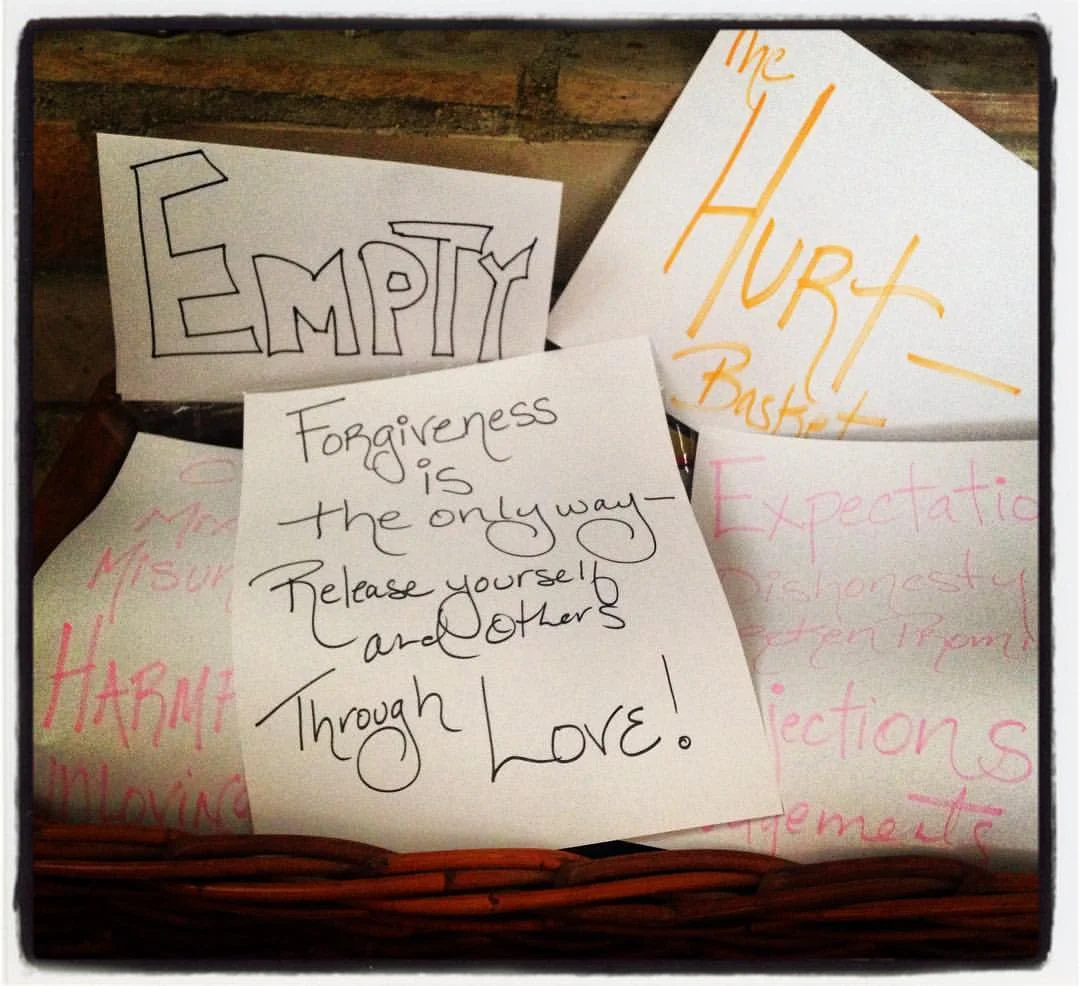 EMPTY
The
HURt
Basket
Forgiveness
is
the only way—
Release yourself
and others
Through Love!
Misun
HARMF
Expectatio
Dishonesty
jections
gements